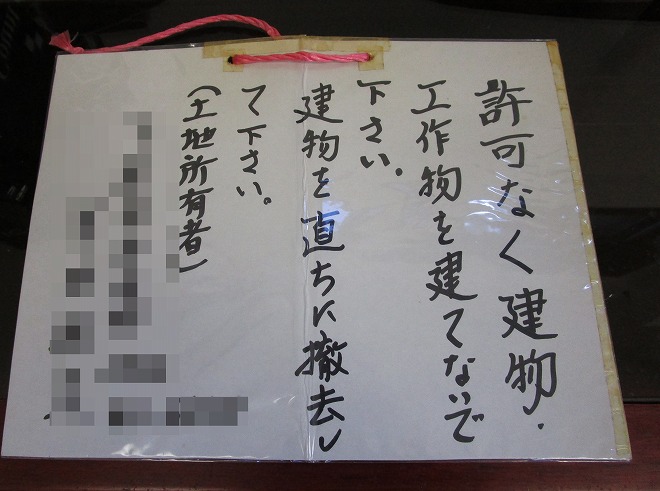 許可なく建物・
工作物を建てないで
下さい。
建物を直ちに撤去し
て下さい。
(土地所有者)